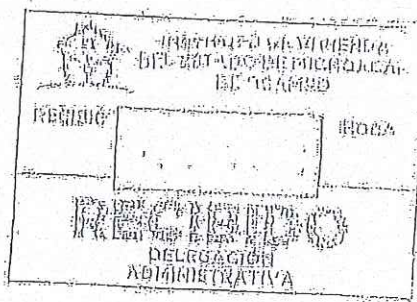 INSTITUTO DE VIVIENDA
DEL ESTADO DE MICHOACAN
DE OCAMPO
RECIBIÓ HORA
RECIBIDO
DELEGACIÓN
ADMINISTRATIVA